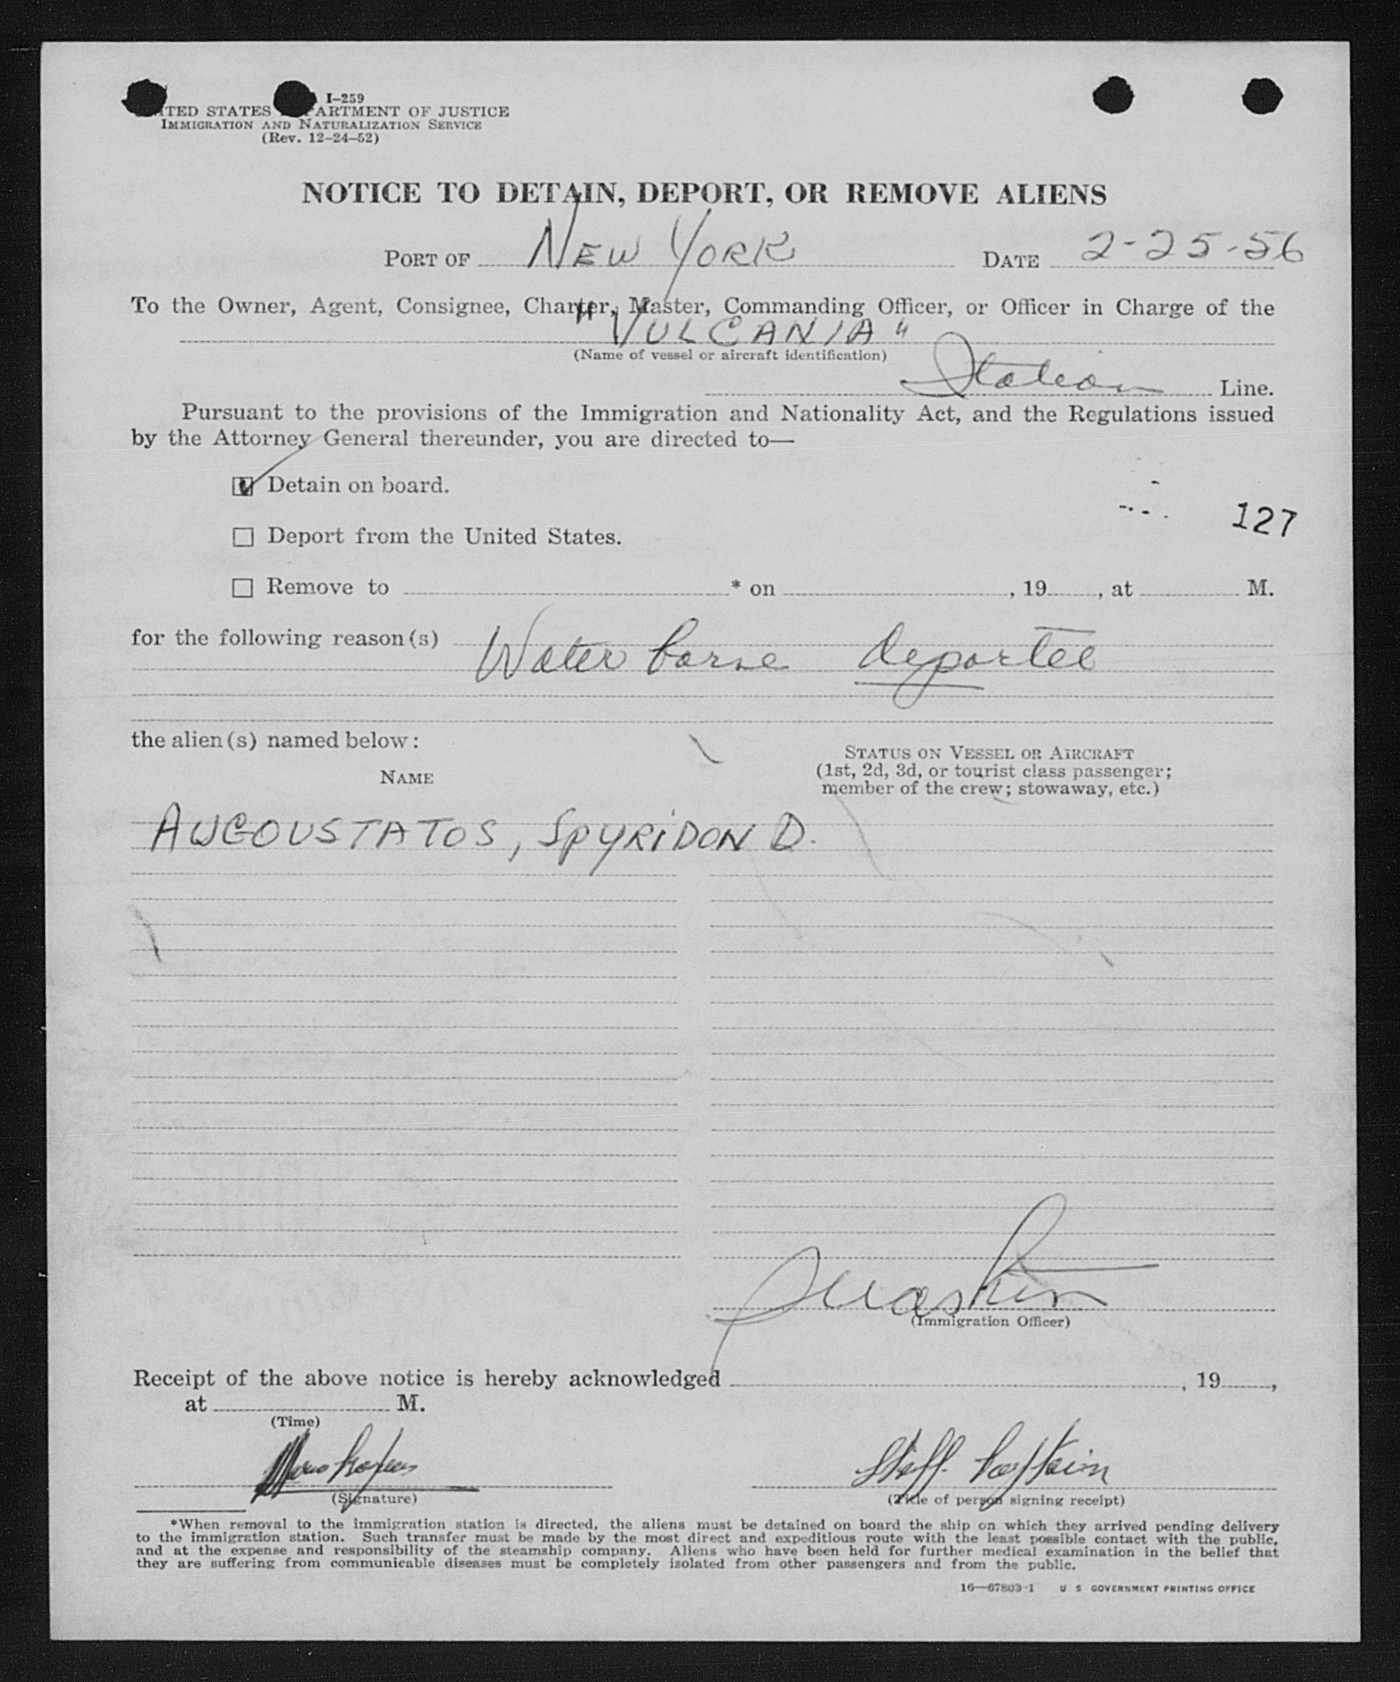 I-259
UNITED STATES DEPARTMENT OF JUSTICE
IMMIGRATION AND NATURALIZATION SERVICE
(Rev. 12-24-52)
NOTICE TO DETAIN, DEPORT, OR REMOVE ALIENS
PORT OF NEW YORK DATE 2-25-56
To the Owner, Agent, Consignee, Charter, Master, Commanding Officer, or Officer in Charge of the
"VULCANIA"
(Name of vessel or aircraft identification)
Italian Line.
Pursuant to the provisions of the Immigration and Nationality Act, and the Regulations issued
by the Attorney General thereunder, you are directed to—
Detain on board.
127
Deport from the United States.
Remove to * on , 19 , at M.
for the following reason(s) Water borne deportee
the alien(s) named below:
STATUS ON VESSEL OR AIRCRAFT
NAME (1st, 2d, 3d, or tourist class passenger;
member of the crew; stowaway, etc.)
AUGOUSTATOS, SPYRIDON D.
(Immigration Officer)
Receipt of the above notice is hereby acknowledged , 19 ,
at M.
(Time)
Staff Captain
(Signature) (Title of person signing receipt)
*When removal to the immigration station is directed, the aliens must be detained on board the ship on which they arrived pending delivery
to the immigration station. Such transfer must be made by the most direct and expeditious route with the least possible contact with the public,
and at the expense and responsibility of the steamship company. Aliens who have been held for further medical examination in the belief that
they are suffering from communicable diseases must be completely isolated from other passengers and from the public.
16—67803-1 U S GOVERNMENT PRINTING OFFICE